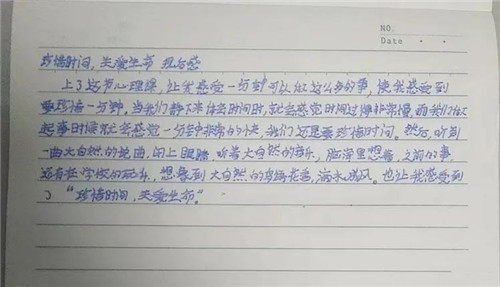 NO.
Date
珍惜时间,关爱生命 观后感
上了这节心理课,让我感受一分钟可以做这么多的事,使我感受到
要珍惜一分钟,当我们静下来体会时间时,就会感觉时间过得非常慢,而我们做
起事时候就会感觉一分钟非常的快,我们还是要珍惜时间。然后,听到
一曲大自然的歌曲,闭上眼睛,听着大自然的音乐,脑海里想着,之前的事
还有在学校的欢乐,想象到大自然的鸟语花香,滴水成风。也让我感受到
了“珍惜时间,关爱生命。”